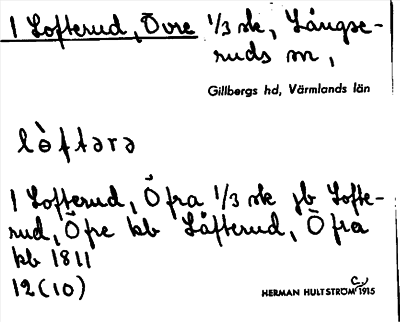 1 Lofterud, Övre 1/3 sk, Långse-
ruds sn,
Gillbergs hd, Värmlands län
lòftərə
1 Lofterud, Öfra 1/3 sk jb Lofte-
rud, Öfre kb Låfterud, Öfra
kb 1811
12(10)
HERMAN HULTSTRÖM 1915